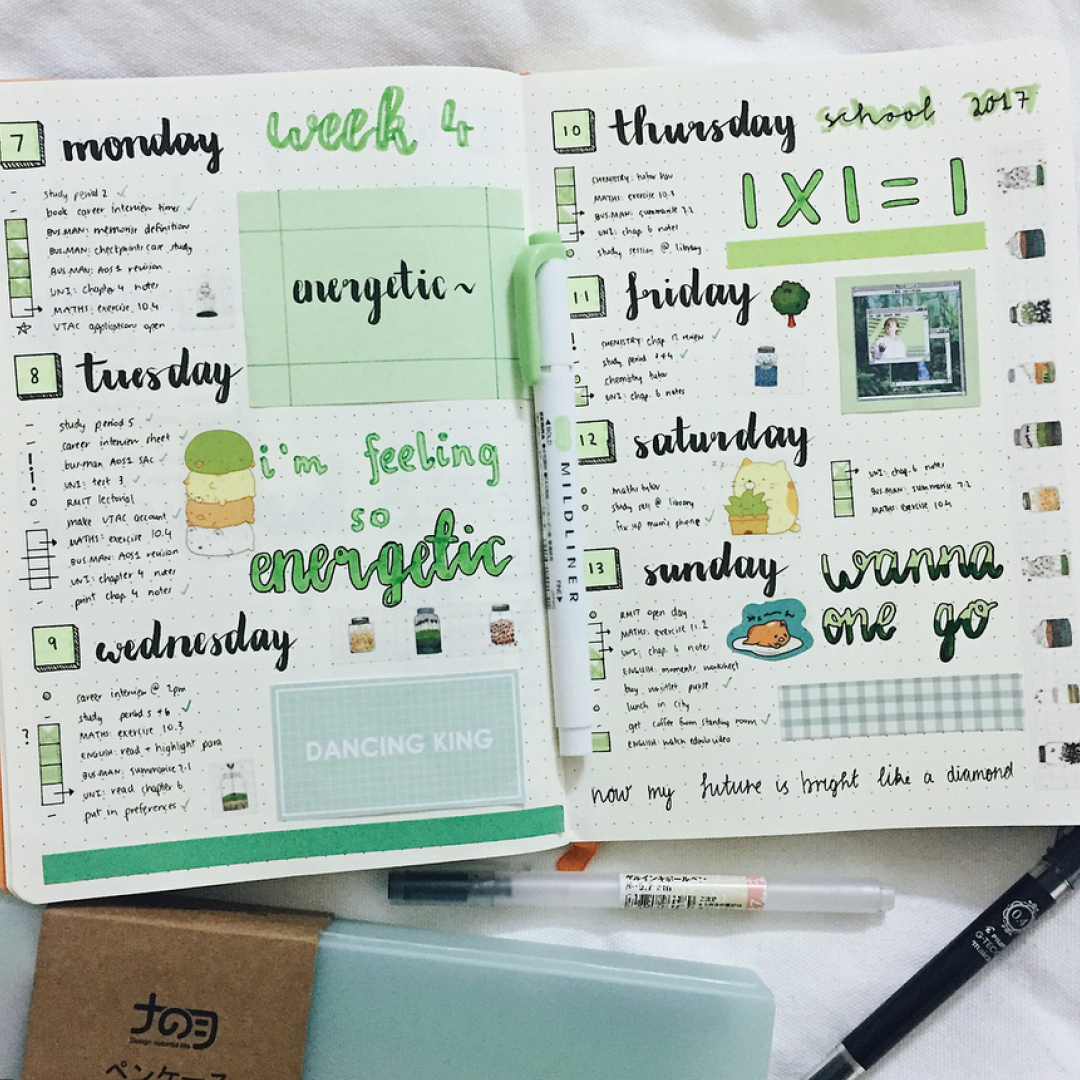 7
monday
week 4
study period 2
book career interview times
BUS.MAN: memorise definition
BUS.MAN: checkpoints case study
BUS.MAN: AOS1 revision
UNI: chapter 4 notes
MATHS: exercise 10.4
VTAC application open
energetic~
8
tuesday
study period 5
career interview sheet
bus.man AOS1 SAC
UNI: test 3
RMIT lectorial
make VTAC account
MATHS: exercise 10.4
BUS.MAN: AOS1 revision
UNI: chapter 4 notes
print chap 4 notes
i'm feeling
so
energetic
9
wednesday
career interview @ 2pm
study period 5 + 6
MATHS: exercise 10.3
ENGLISH: read + highlight para
BUS.MAN: summarise 7.1
UNI: read chapter 6
put in preferences
DANCING KING
10
thursday
school 2017
CHEMISTRY: tutor hw
MATHS: exercise 10.3
BUS.MAN: summarise 7.2
UNI: chap 6 notes
study session @ library
1X1=1
11
friday
CHEMISTRY: chap 12 review
study period 3+4
chemistry tutor
UNI: chap. 6 notes
12
saturday
maths tutor
study sesh @ library
fix up mum's phone
UNI: chap. 6 notes
BUS.MAN: summarise 7.2
MATHS: exercise 10.4
13
sunday
RMIT open day
MATHS: exercise 11.2
UNI: chap. 6 notes
ENGLISH: moments worksheet
buy wristlet purse
lunch in city
get coffee from standing room
ENGLISH: watch video
wanna
one go
now my future is bright like a diamond
MILDLINER
ゲルインキボールペン
ナのヨ
Design colorful life
ペンケース
0.4
PILOT
G-TEC-C